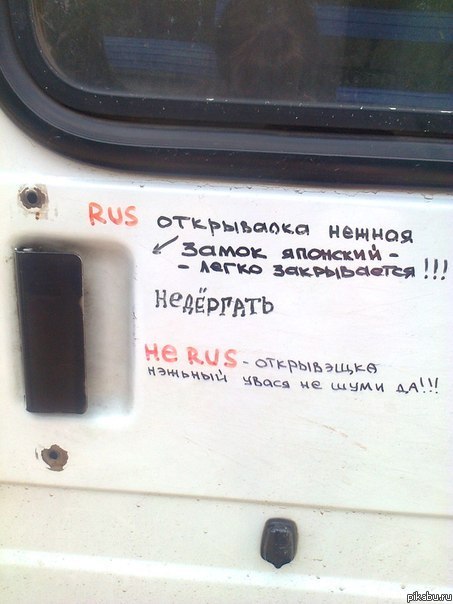 RUS открывалка нежная
Замок японский -
- легко закрывается!!!
НЕДЁРГАТЬ
НЕ RUS - открывэщка
нэжьный увася не шуми да!!!
pikabu.ru